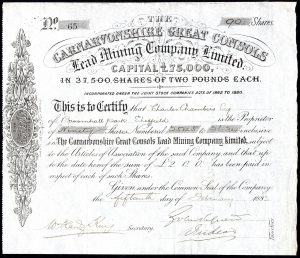 No. 65
90 Shares
THE
CARNARVONSHIRE GREAT CONSOLS
Lead Mining Company Limited.
CAPITAL £75,000,
IN 37,500 SHARES OF TWO POUNDS EACH.
INCORPORATED UNDER THE JOINT STOCK COMPANIES ACTS OF 1862 TO 1880.
This is to Certify that Charles Chambers Esq
of Broomhall Park Sheffield is the Proprietor
of Ninety Shares Numbered to inclusive
in The Carnarvonshire Great Consols Lead Mining Company, Limited, subject
to the Articles of Association of the said Company, and that up
to the date hereof the sum of £2. 0. 0. has been paid in
respect of each of such Shares.
Given under the Common Seal of the Company
the fifteenth day of February 188
Secretary.